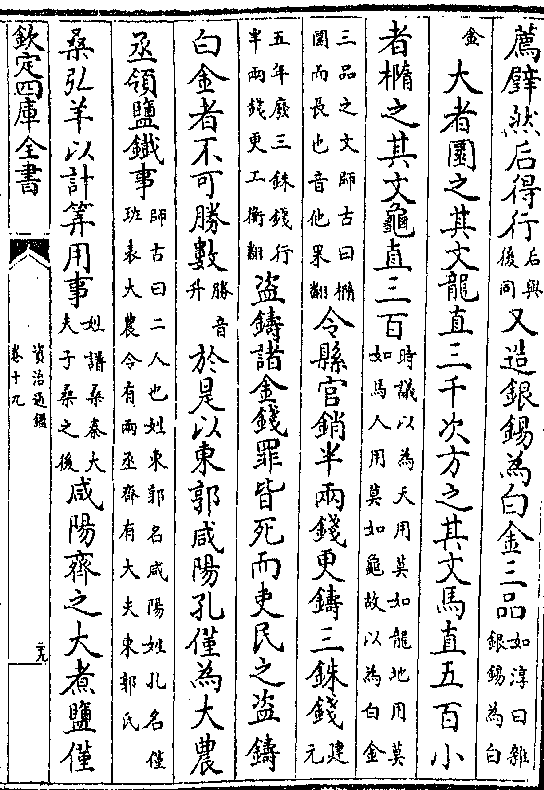 薦璧然后得行后與後同又造銀錫為白金三品如淳曰雜銀錫為白
金大者圜之其文龍直三千次方之其文馬直五百小
者橢之其文龜直三百時議以為天用莫如龍地用莫如馬人用莫如龜故以為白金
三品之文師古曰橢圜而長也音他果翻令縣官銷半兩錢更鑄三銖錢建元
五年廢三銖錢行半兩錢更工衡翻盜鑄諸金錢罪皆死而吏民之盜鑄
白金者不可勝數勝音升於是以東郭咸陽孔僅為大農
丞領鹽鐵事師古曰二人也姓東郭名咸陽姓孔名僅班表大農令有兩丞齊有大夫東郭氏
桑弘羊以計筭用事姓譜桑秦大夫子桑之後咸陽齊之大煮鹽僅
欽定四庫全書
資治通鑑
卷十九
二九